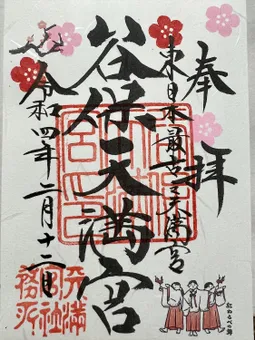 奉拝
東日本最古之天満宮
谷保天満宮
令和四年二月十二日
天満
宮社
務所